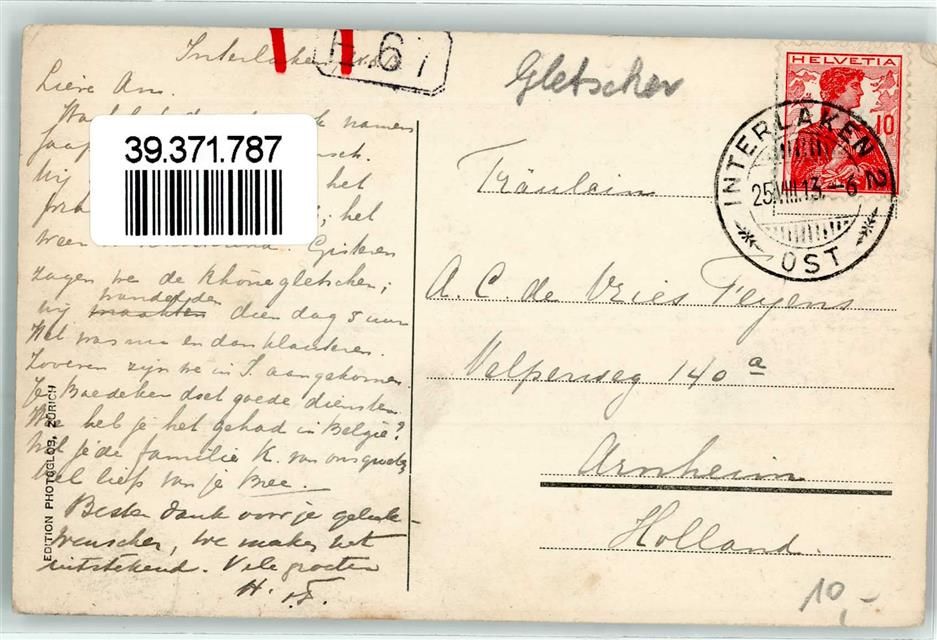 Interlaken
H 67
Gletscher
HELVETIA
10
INTERLAKEN 2
25.VIII.13.-6
OST
39.371.787
Lieve Ann.
namens
het
het
Gisteren
zagen we de Rhônegletscher;
wij wandelden dien dag 5 uur
Het was nu en dan klauteren.
Zooeven zijn we in I. aangekomen.
Je Baedeker doet goede diensten.
Hoe heb je het gehad in België?
Wil je de familie K. van ons groeten
Veel liefs van je Bree.
Besten dank voor je geluk-
wenschen, we maken het
uitstekend. Vele groeten
H.
EDITION PHOTOGLOB, ZÜRICH
Fräulein
A. C. de Vries Feyens
Velperweg 140 a
Arnheim
Holland.
10,-